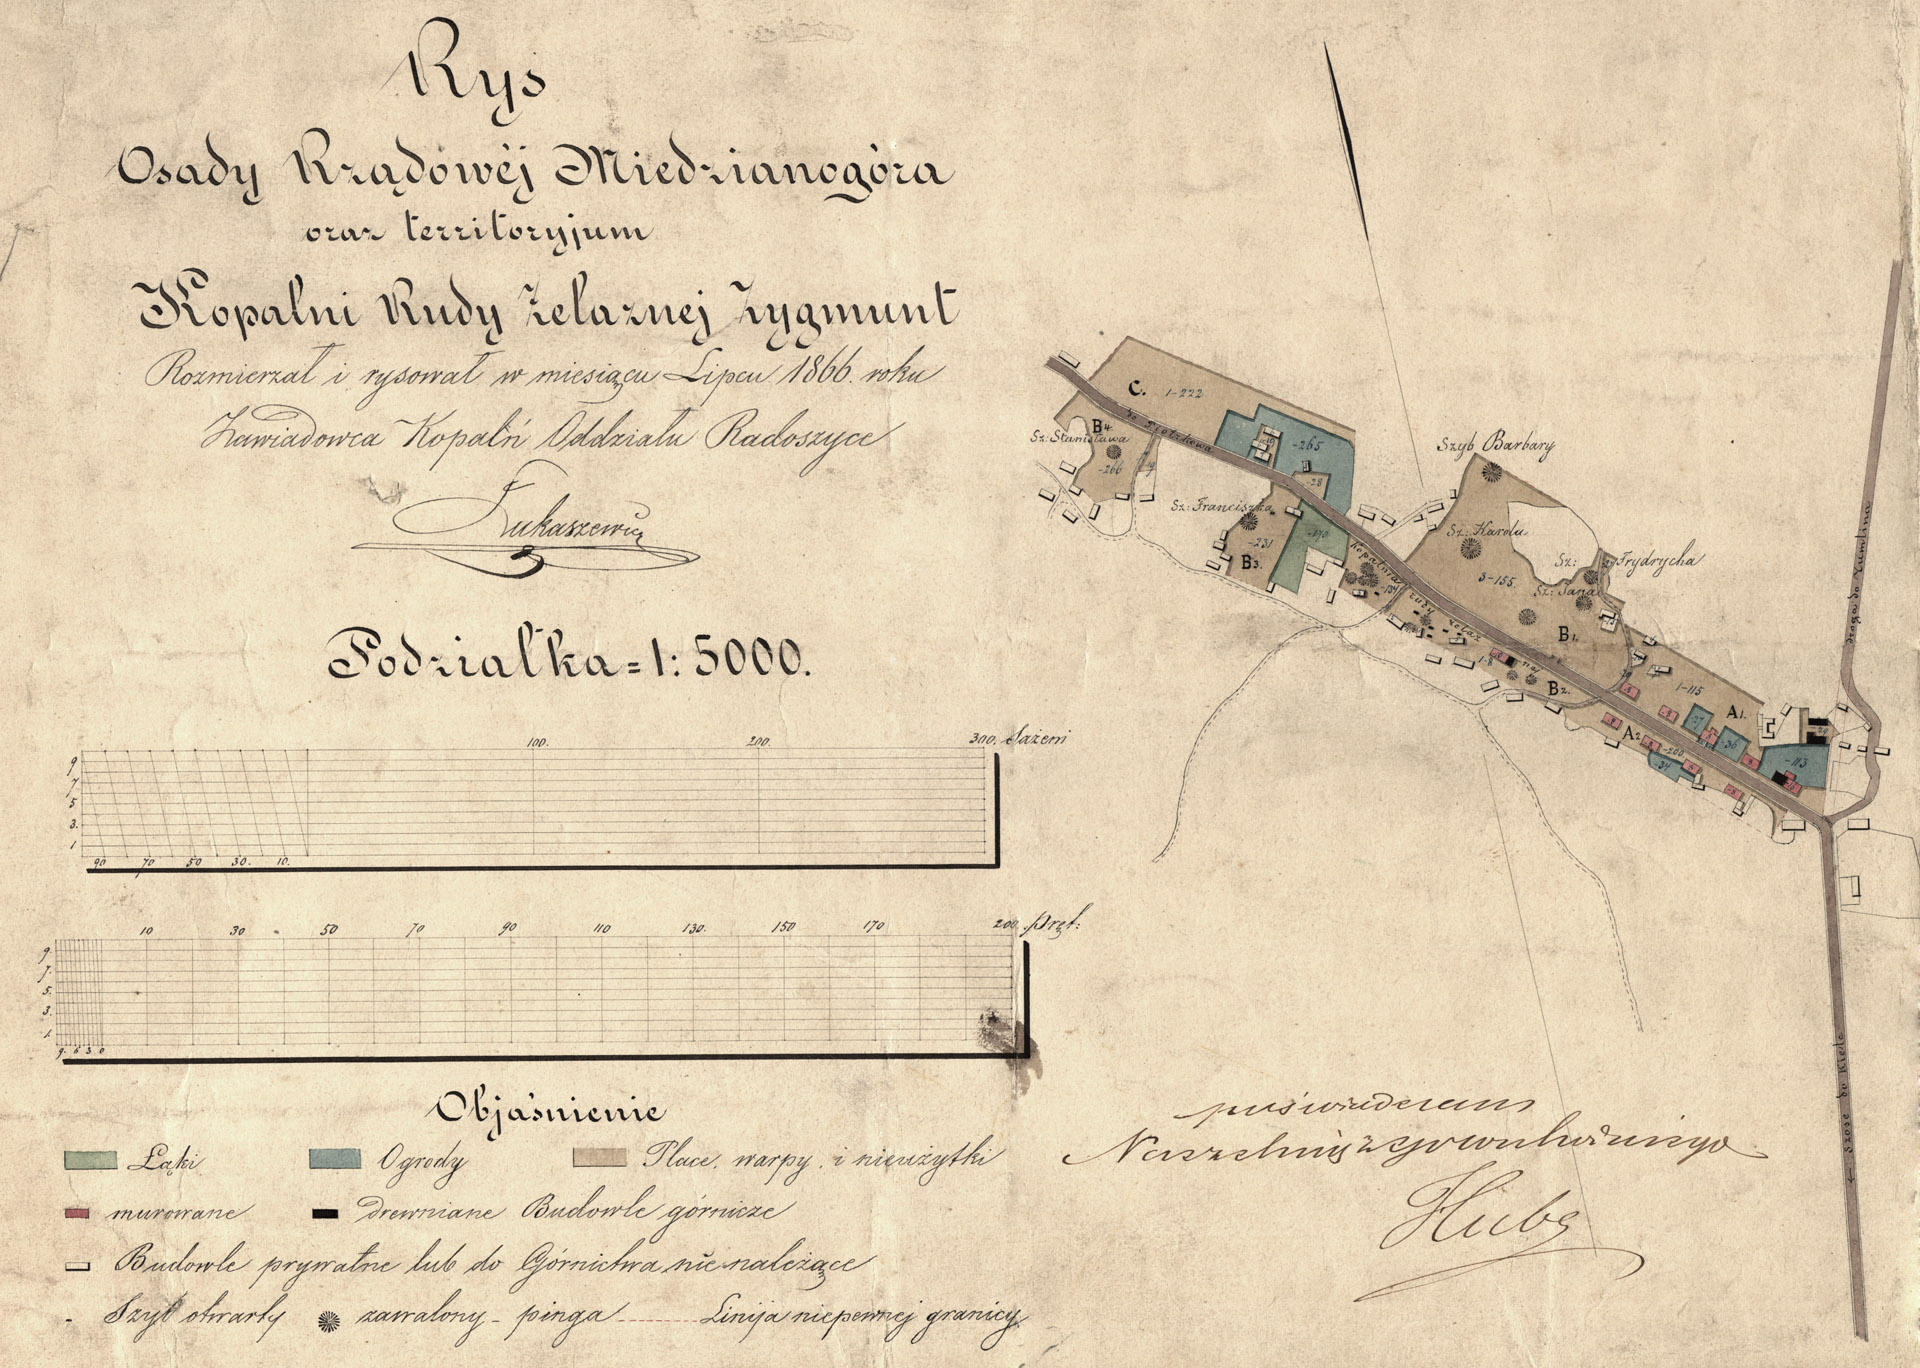 Rys
Osady Rządowéj Miedzianogóra
oraz territoryjum
Kopalni Rudy Żelaznej Zygmunt
Rozmierzał i rysował w miesiącu Lipcu 1866. roku
Zawiadowca Kopalń Oddziału Radoszyce
Łukaszewicz
Podziałka = 1: 5000.
100. 200. 300. Sażeni
9
7
5
3.
1
90 70 50 30. 10.
10 30 50 70 90 110 130. 150 170 200. Pręt:
9.
7.
5.
3.
1.
9. 6 3 0
Objaśnienie
Łąki
Ogrody
Place, warpy, i nieużytki
murowane
drewniane Budowle górnicze
Budowle prywatne lub do Górnictwa nie należące
Szyb otwarty
zawalony - pinga
Linija niepewnej granicy
C.
1-222
do Piotrkowa
B4.
Sz: Stanisława
-266
-265
-28
Sz: Franciszka
-231
B3.
-170
Kopalnia rudy żelaz nej
Szyb Barbary
Sz: Karola
Sz: Frydrycha
Sz: Jana
3-155.
B1.
1-8
B2.
1-115
A1.
A2.
-200
-34
-27
-36
-113
droga do Zumlina
Szose do Kielc
poświadczam
Hube